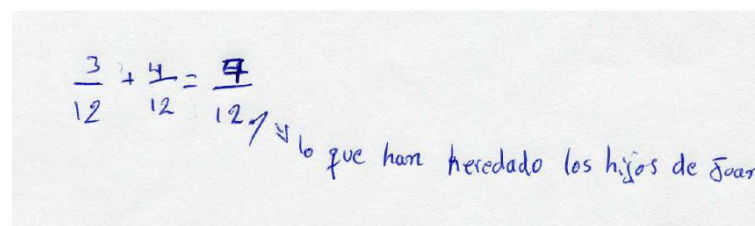 3/12 + 4/12 = 7/12 // ⇒ lo que han heredado los hijos de Joan